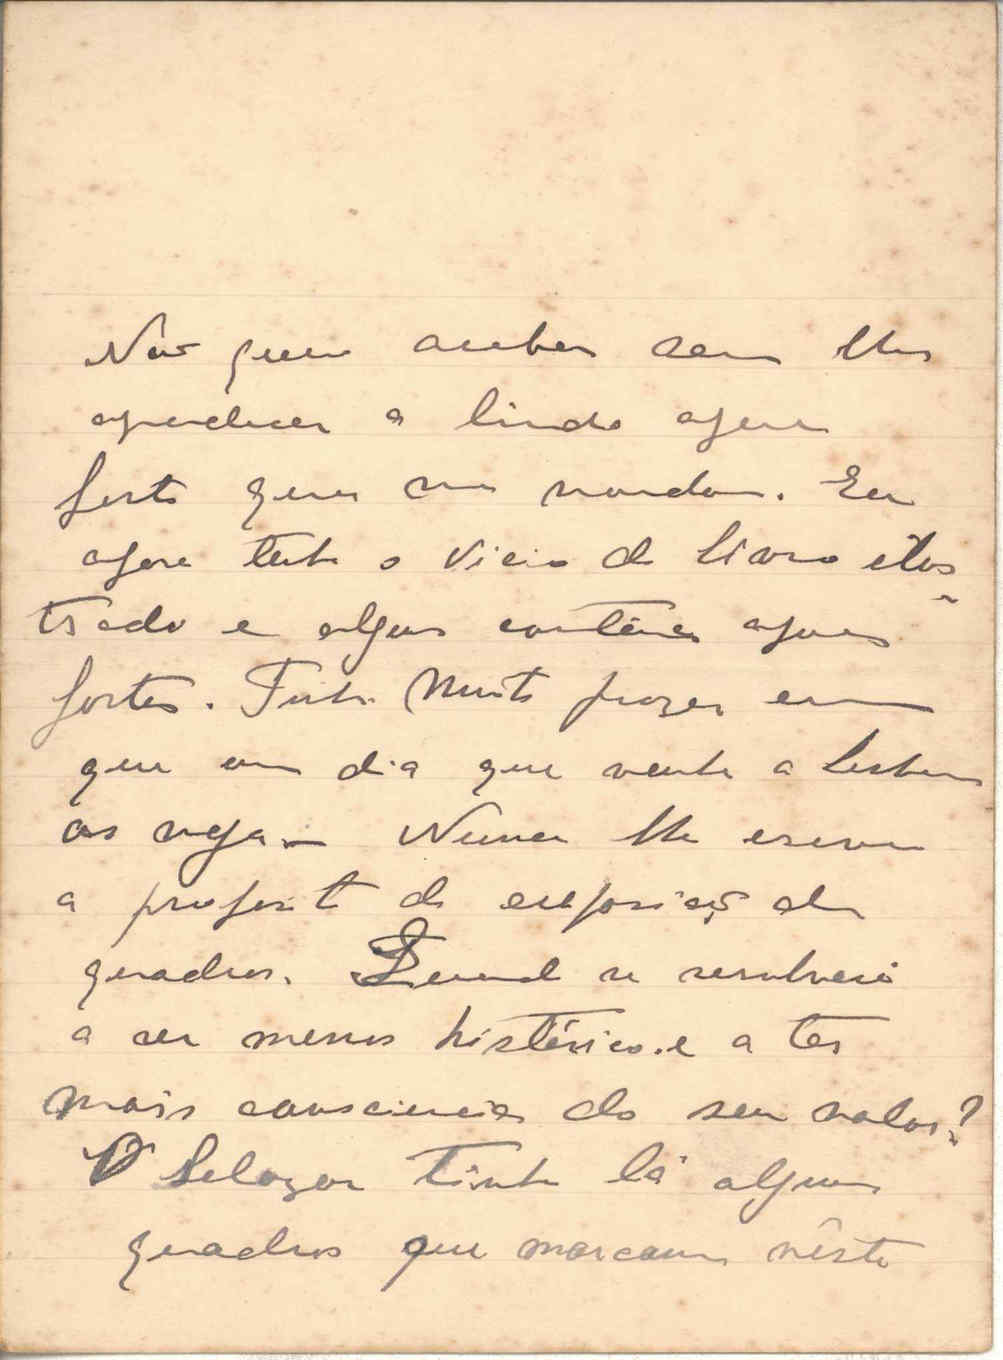 Não quero acabar sem lhe
agradecer a linda agua
forte que me mandou. Eu
agora tenho o vicio do livro ilus
trado e alguns contêm aguas
fortes. Tenho muito prazer em
que um dia que venha a Lisboa
os veja — Nunca lhe escrevi
a proposito da exposição de
quadros. Quando se resolverá
a ser menos histérico e a ter
mais consciencia do seu valor?
O Selazar tinha lá alguns
quadros que marcam nêste